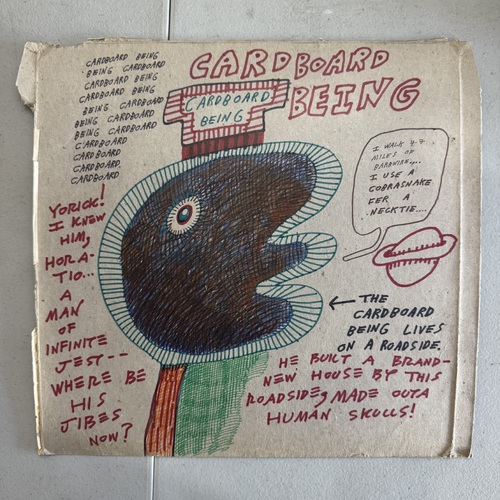 CARDBOARD BEING
BEING CARDBOARD
CARDBOARD BEING
CARDBOARD BEING
BEING CARDBOARD
BEING CARDBOARD
BEING CARDBOARD
CARDBOARD
CARDBOARD
CARDBOARD.
CARDBOARD
CARDBOARD
BEING
CARDBOARD
BEING
I WALK 47
MILES OF
I USE A
COBRASNAKE
FER A
NECKTIE....
YORICK!
I KNEW
HIM,
HORA-
TIO...
A
MAN
OF
INFINITE
JEST--
WHERE BE
HIS
JIBES
NOW?
← THE
CARDBOARD
BEING LIVES
ON A ROADSIDE.
HE BUILT A BRAND-
NEW HOUSE BY THIS
ROADSIDE, MADE OUTA
HUMAN SKULLS!